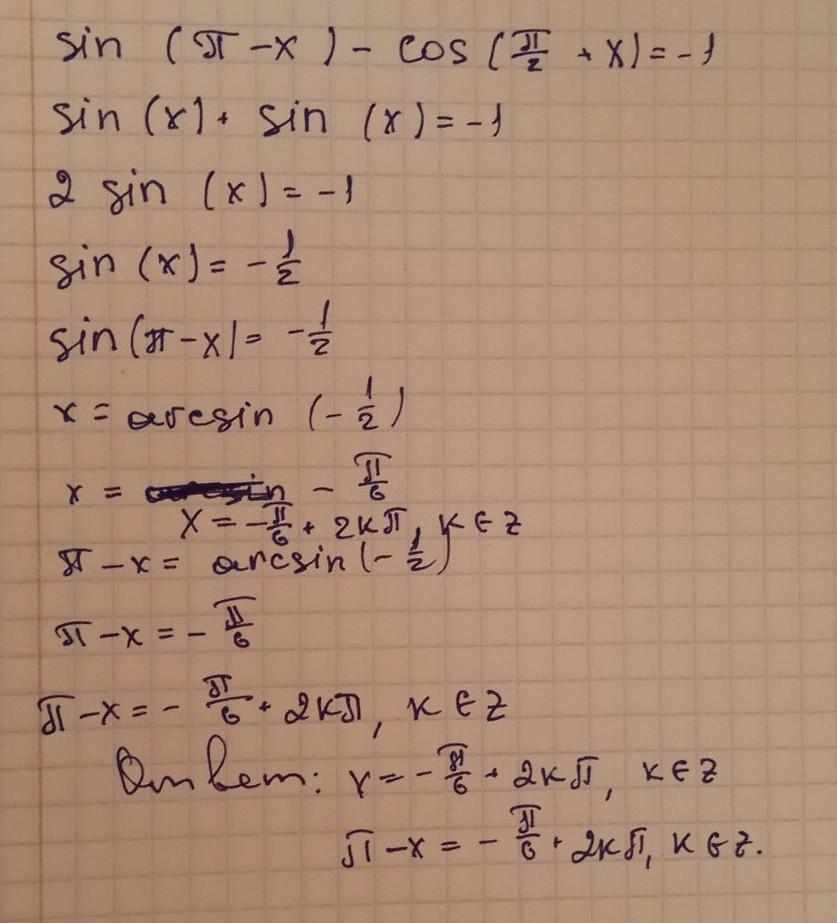 sin (π - x) - cos (π/2 + x) = -1
sin (x) + sin (x) = -1
2 sin (x) = -1
sin (x) = -1/2
sin (π - x) = -1/2
x = arcsin (-1/2)
x = - π/6
x = -π/6 + 2kπ, k ∈ Z
π - x = arcsin (-1/2)
π - x = - π/6
π - x = - π/6 + 2kπ, k ∈ Z
Ответ: x = -π/6 + 2kπ, k ∈ Z
π - x = - π/6 + 2kπ, k ∈ Z.